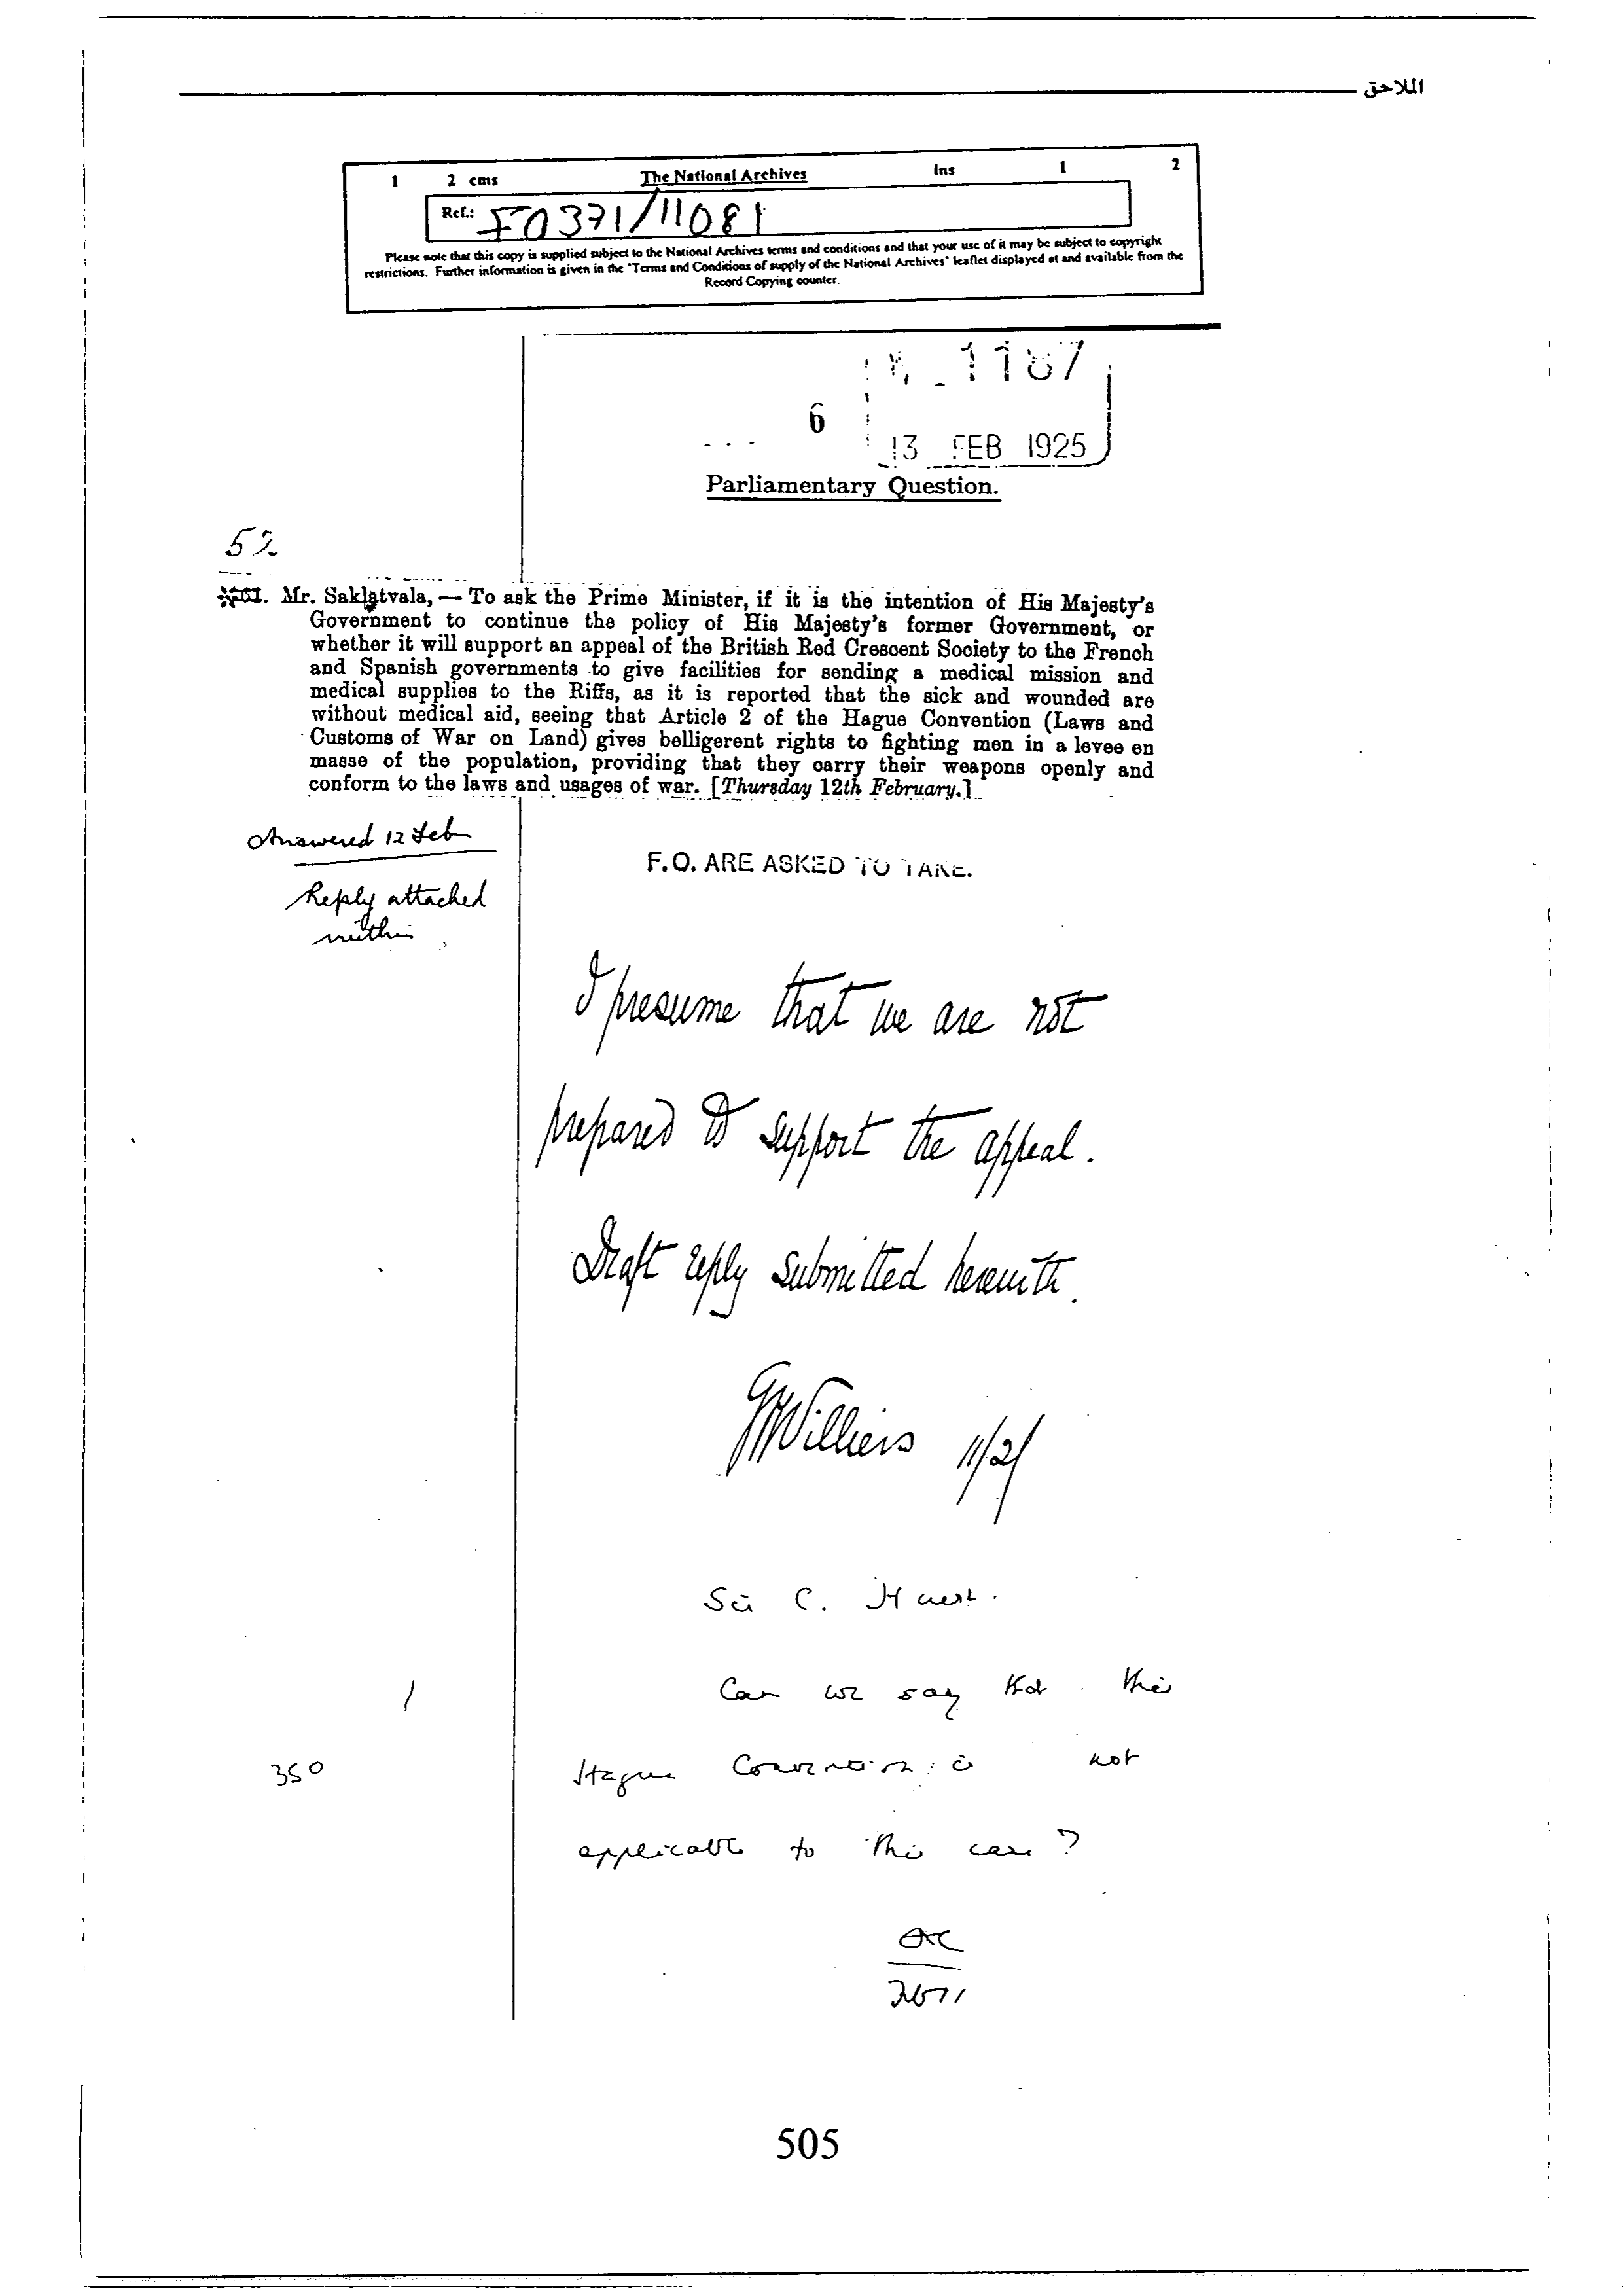 الملاحق
1 2 cms The National Archives Ins 1 2
Ref.: FO371/11081
Please note that this copy is supplied subject to the National Archives terms and conditions and that your use of it may be subject to copyright
restrictions. Further information is given in the "Terms and Conditions of supply of the National Archives" leaflet displayed at and available from the
Record Copying counter.
1187
6
13 FEB 1925
Parliamentary Question.
52
Mr. Saklatvala, — To ask the Prime Minister, if it is the intention of His Majesty's
Government to continue the policy of His Majesty's former Government, or
whether it will support an appeal of the British Red Crescent Society to the French
and Spanish governments to give facilities for sending a medical mission and
medical supplies to the Riffs, as it is reported that the sick and wounded are
without medical aid, seeing that Article 2 of the Hague Convention (Laws and
Customs of War on Land) gives belligerent rights to fighting men in a levee en
masse of the population, providing that they carry their weapons openly and
conform to the laws and usages of war. [Thursday 12th February.]
Answered 12 Feb
Reply attached
within
F.O. ARE ASKED TO TAKE.
I presume that we are not
prepared to support the appeal.
Draft reply submitted herewith.
GHVilliers 11/2/
Sir C. Hurst.
Can we say that this
Hague Convention is not
350
applicable to this case?
505